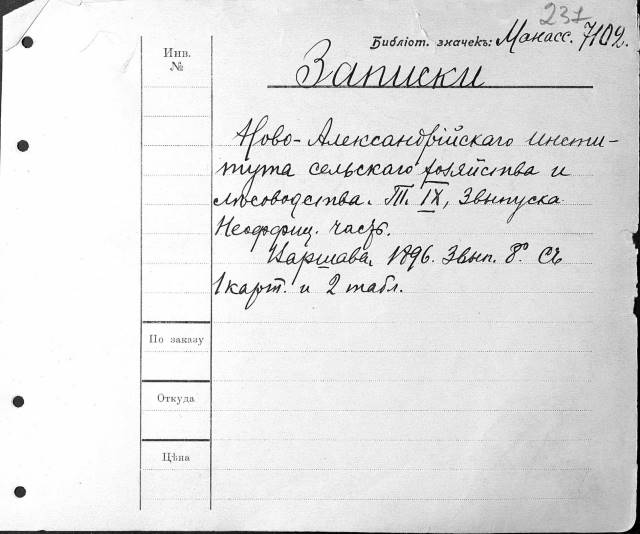 237
Библіот. значекъ: Манасс. 7102.
Инв.
№
Записки
Ново-Александрійскаго инсти-
тута сельскаго хозяйства и
лѣсоводства. Т. IX, 3 выпуска
Неоффиц. часть.
Варшава. 1896. 3 вып. 8° Съ
1 карт. и 2 табл.
По заказу
Откуда
Цѣна